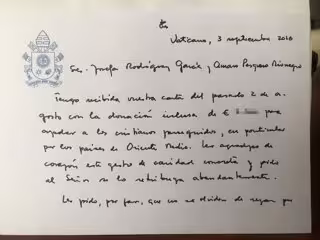 Vaticano, 3 septiembre 2018
Sres. Josefa Rodríguez García y
Tengo recibida vuestra carta del pasado 2 de a-
gosto con la donación inclusa de € para
ayudar a los cristianos perseguidos, en particular
por los países de Oriente Medio. Les agradezco de
corazón este gesto de caridad concreta y pido
al Señor se lo retribuya abundantemente.
Les pido, por favor, que no se olviden de rezar por